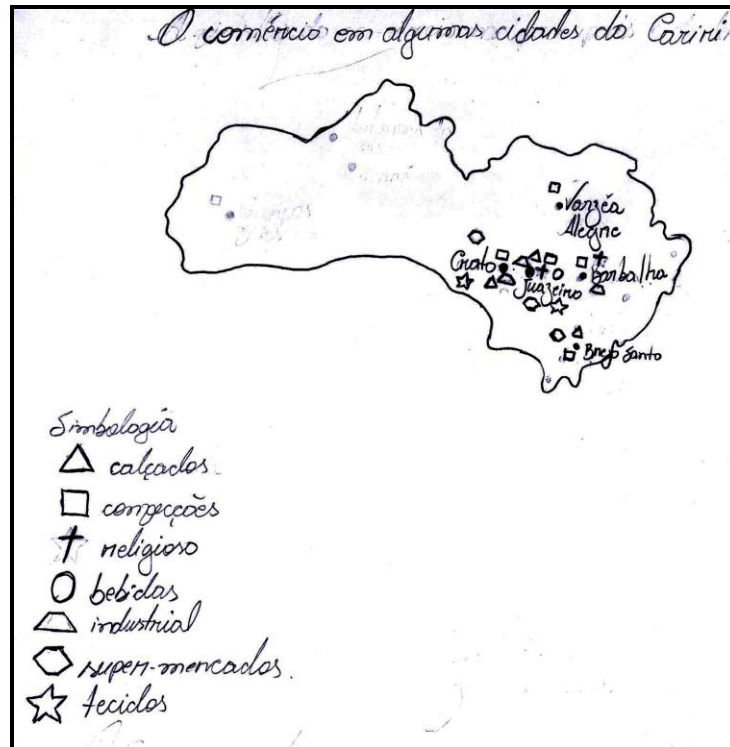 O comércio em algumas cidades do Cariri
Varzéa
Alegre
Crato
Juazeiro
Barbalha
Brejo Santo
Simbologia
calçados
confecções
religioso
bebidas
industrial
super-mercados.
tecidos